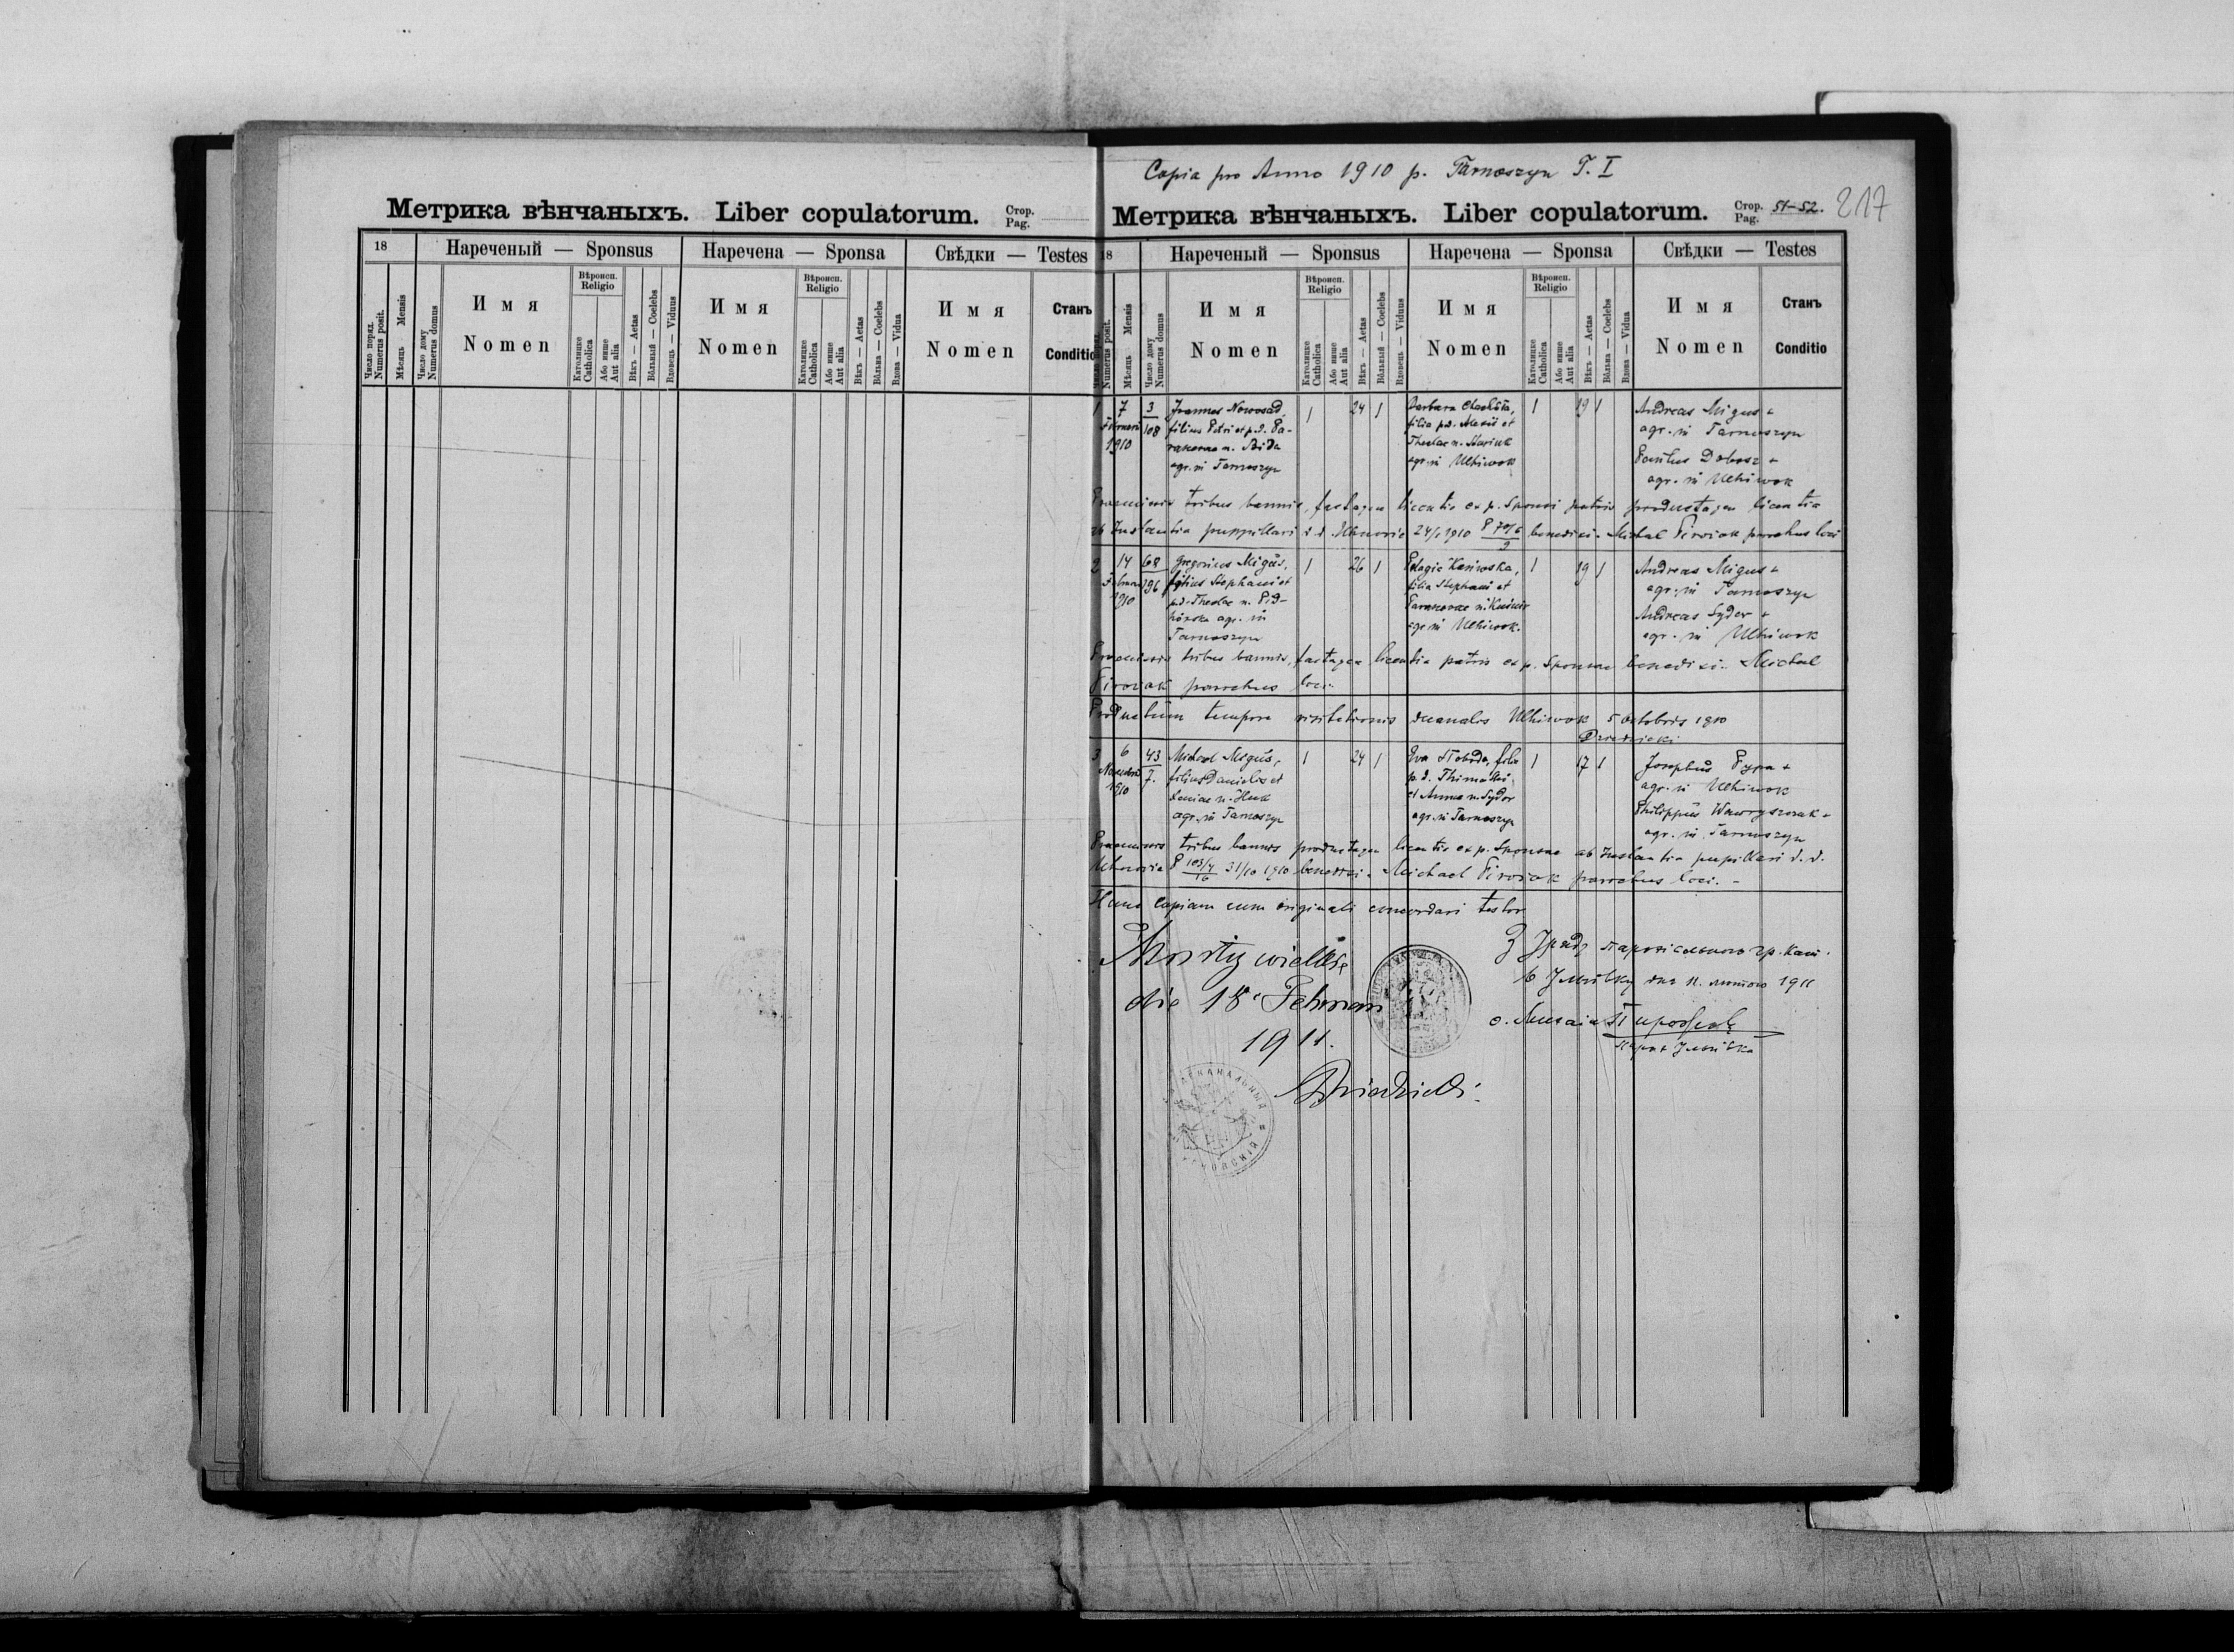 Метрика вѣнчаныхъ. Liber copulatorum. Стор. Pag.
18
Нареченый — Sponsus
Наречена — Sponsa
Свѣдки — Testes
Число поряд. Numerus posit.
Мѣсяць Mensis
Число дому Numerus domus
Имя
Nomen
Вѣроисп. Religio
Католицке Catholica
Або инше Aut alia
Вѣкъ — Aetas
Вôльный — Coelebs
Вдовець — Viduus
Имя
Nomen
Вѣроисп. Religio
Католицке Catholica
Або инше Aut alia
Вѣкъ — Aetas
Вôльна — Coelebs
Вдова — Vidua
Имя
Nomen
Станъ
Conditio
Copia pro Anno 1910 p. Tarnoszyn T. I
Метрика вѣнчаныхъ. Liber copulatorum. Стор. Pag. 51-52.
217
18
Нареченый — Sponsus
Наречена — Sponsa
Свѣдки — Testes
Numerus posit.
Мѣсяць Mensis
Число дому Numerus domus
Имя
Nomen
Вѣроисп. Religio
Католицке Catholica
Або инше Aut alia
Вѣкъ — Aetas
Вôльный — Coelebs
Вдовець — Viduus
Имя
Nomen
Вѣроисп. Religio
Католицке Catholica
Або инше Aut alia
Вѣкъ — Aetas
Вôльна — Coelebs
Вдова — Vidua
Имя
Nomen
Станъ
Conditio
1
7
1910
3
108
Joannes Nowosad,
filius Petri et p.d. Pa-
n.
agr. in Tarnoszyn
1
24
1
Barbara
filia p.d. Alexii et
Theclae n.
agr. in Uhniwok
1
19
1
Andreas Migus +
agr. in Tarnoszyn
Dobosz +
agr. in Uhniwok
Praemissis tribus bannis, factaque licentia ex p. Sponsi patris productaque licentia
ab Instantia puppillari d. d. Uhnoviae 24/1 1910 benedixi. Michael Pirożak parochus loci
2
14
1910
68
196
Gregorius Migus,
filius Stephani et
p.d. Theclae n. Pid-
hórska agr. in
Tarnoszyn
1
26
1
Pelagia
filia Stephani et
n.
agr. in Uhniwok.
1
19
1
Andreas Migus +
agr. in Tarnoszyn
Andreas Syder +
agr. in Uhniwok
Praemissis tribus bannis, factaque licentia patris ex p. Sponsae benedixi. Michael
Pirożak parochus loci.
Productum tempore visitationis decanalis Uhniwok 5 octobris 1910
3
6
Novembris
1910
43
7.
Michael Migus,
filius Danielis et
n. Huk
agr. in Tarnoszyn
1
24
1
Eva Sloboda, filia
p.d.
et Annae n. Sydor
agr. in Tarnoszyn
1
17
1
Josephus Pypa +
agr. in Uhniwok
Philippus Wawryszczak +
agr. in Tarnoszyn
Praemissis tribus bannis productaque licentia ex p. Sponsae ab Instantia pupillari d. d.
Uhnoviae P 103/4 16 31/10 1910 benedixi. Michael Pirożak parochus loci. -
Hanc Copiam cum originali concordari testor
Mosty wielkie
die 18. Februarii
1911.
З Уряду парохіального гр. кат.
в дня 11. лютого 1911
о. Михаил Пирожак